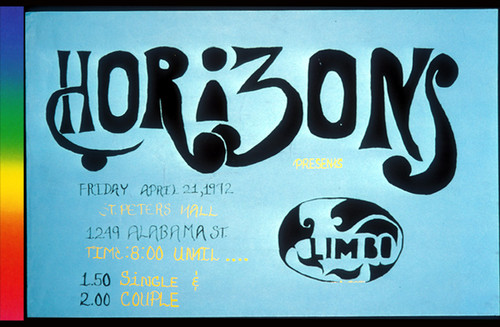 HORiZONS
PRESENTS
FRIDAY APRIL 21, 1972
ST. PETERS HALL
1249 ALABAMA ST.
TIME: 8:00 UNTIL ....
LIMBO
1.50 SiNGLE &
2.00 COUPLE